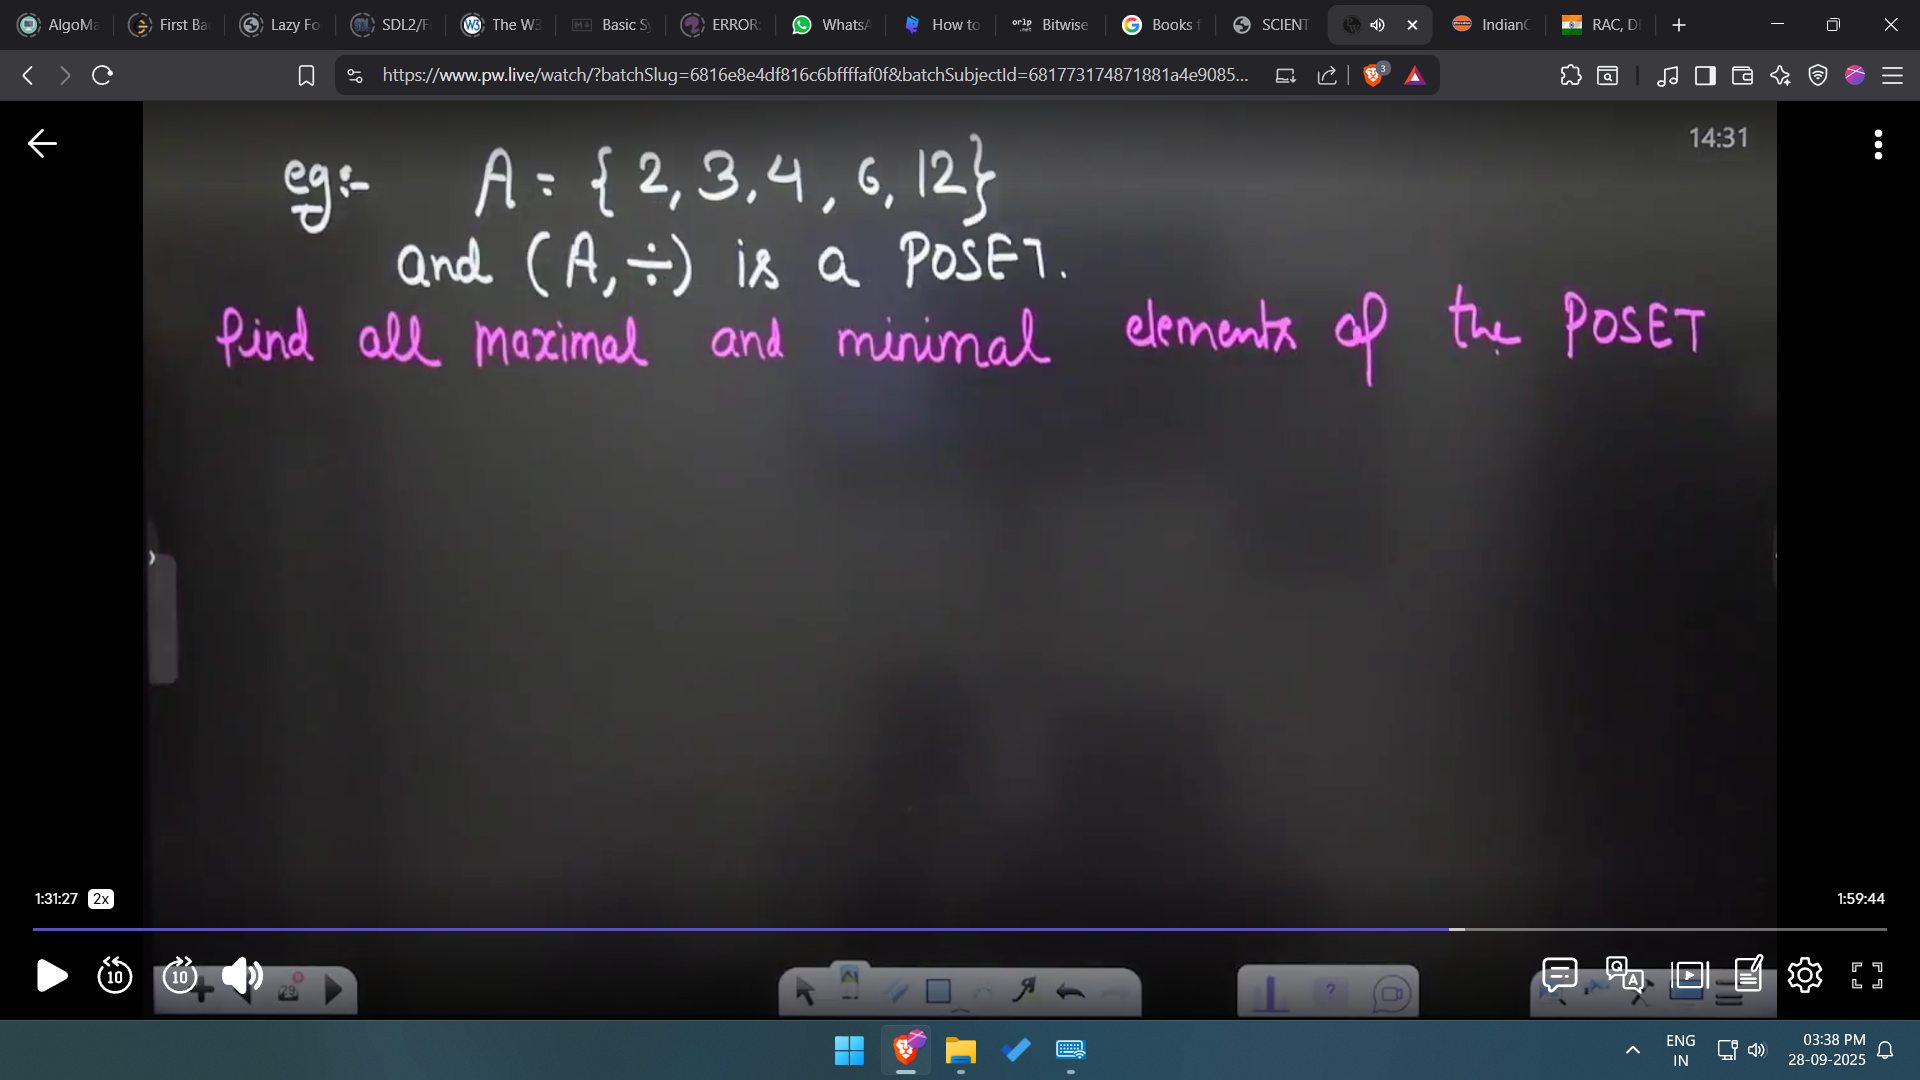 AlgoMa
First Ba
Lazy Fo
SDL2/F
The W3
Basic Sy
ERROR:
WhatsA
How to
Bitwise
Books f
SCIENT
IndianO
RAC, D
https://www.pw.live/watch/?batchSlug=6816e8e4df816c6bffffaf0f&batchSubjectId=681773174871881a4e9085...
3
14:31
eg:- A = { 2, 3, 4, 6, 12}
and (A, ÷) is a POSET.
Find all maximal and minimal elements of the POSET
1:31:27 2x
1:59:44
10
10
29
ENG
IN
03:38 PM
28-09-2025